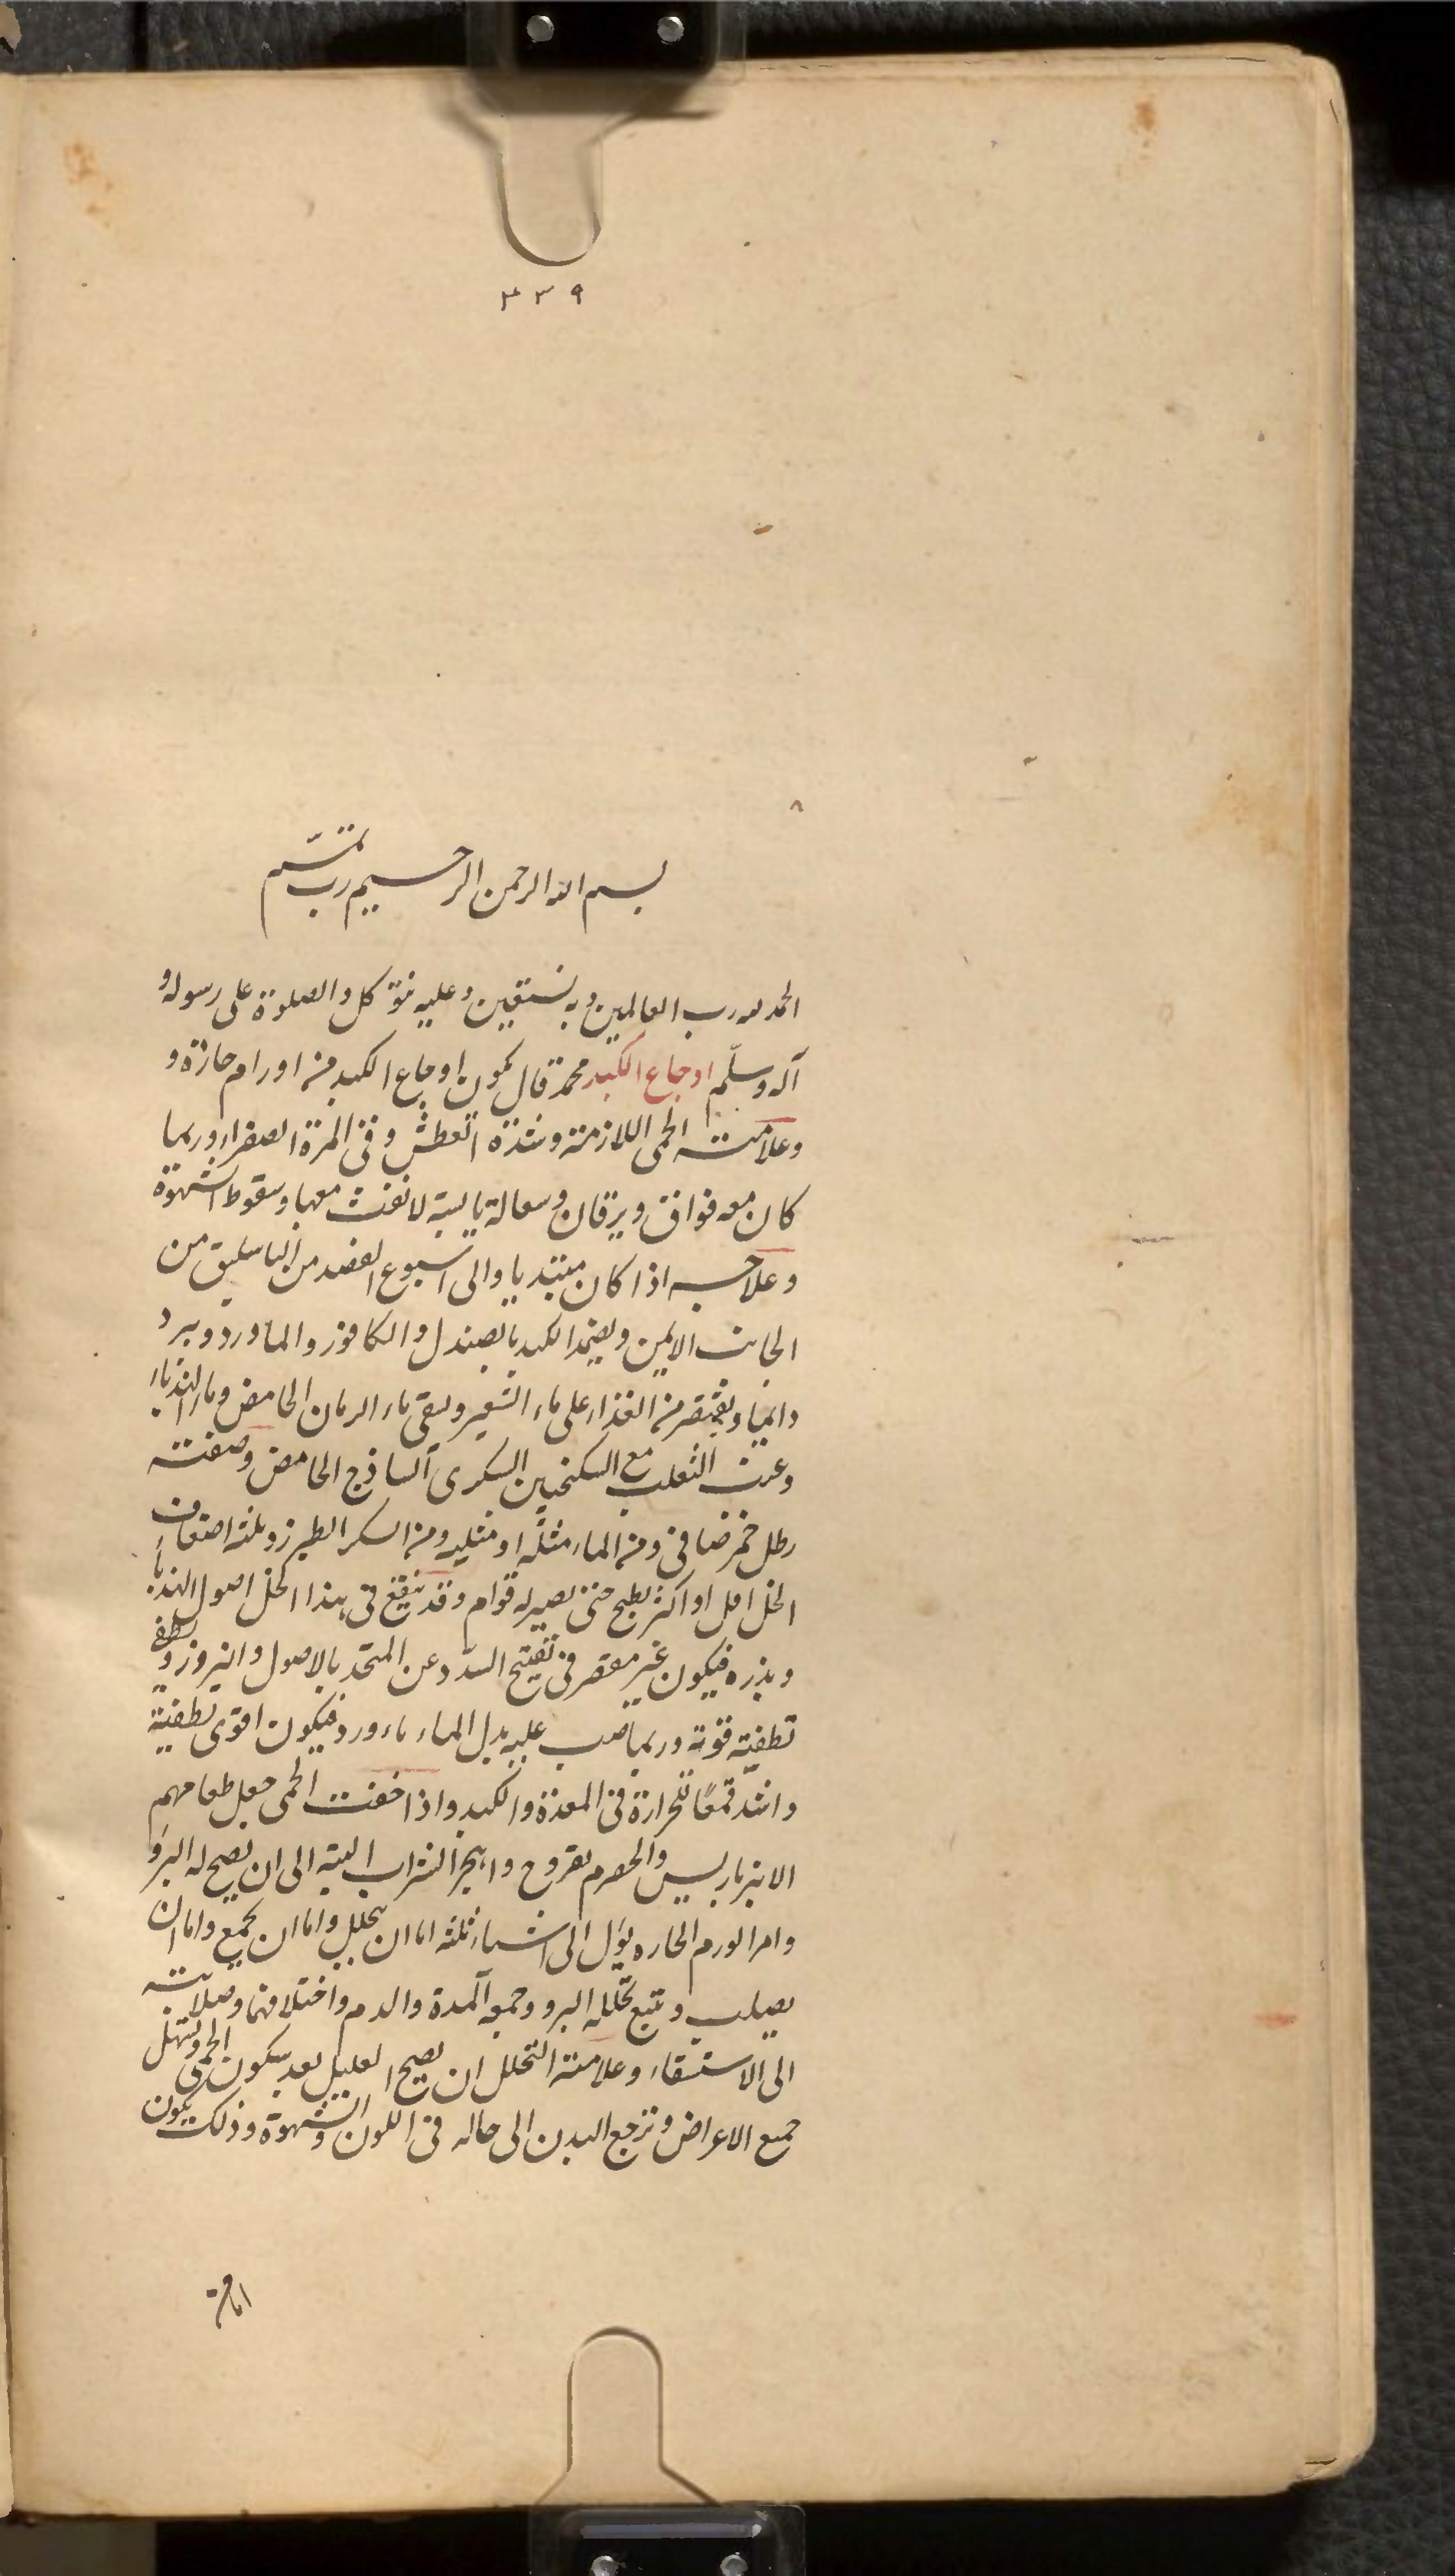 ٣٣٩
بسم الله الرحمن الرحيم رب تمم
الحمد لله رب العالمين وبه نستعين وعليه نتوكل والصلوة على رسوله و
آله وسلّم اوجاع الكبد محمد قال يكون اوجاع الكبد من اورام حارة و
وعلامته الحمى اللازمة وشدة العطش وقى المرة الصفراء وربما
كان معه فواق ويرقان وسعالة يابسة لا نفث معها وسقوط الشهوة
وعلاجه اذا كان مبتديا والى اسبوع الفصد من الباسليق من
الجانب الايمن ويضمد الكبد بالصندل والكافور والماورد ويبرد
دائما ويقتصر من الغذاء على ماء الشعير ويسقى ماء الرمان الحامض وماء الهندباء
وعنب الثعلب مع السكنجبين السكرى الساذج الحامض وصفته
رطل خمر صافى ومن الماء مثله او مثليه ومن السكر الطبرزد ثلثة اضعاف
الخل اقل او اكثر يطبخ حتى يصير له قوام وقد ينقع فى هذا الخل اصول الهندباء
وبذره فيكون غير مقصر فى تفتيح السدد عن المتخذ بالاصول والبزور ويطفى
تطفية قوية وربما صب عليه بدل الماء ماء ورد فيكون اقوى تطفية
واشد قمعًا للحرارة فى المعدة والكبد واذا خفت الحمى جعل طعامهم
الانبرباريس والحصرم بفروج واهجر الشراب البتة الى ان يصح له البرو
وامر الورم الحاره يؤل الى اشياء ثلثه اما ان يتحلل واما ان يجمع واما ان
يصلب ويتبع تحلله البرو وجمعه المدة والدم واختلافهما وصلابته
الى الاستسقاء وعلامة التحلل ان يصح العليل بعد سكون الحمى وتسهل
جميع الاعراض وترجع البدن الى حاله فى اللون والشهوة وذلك يكون